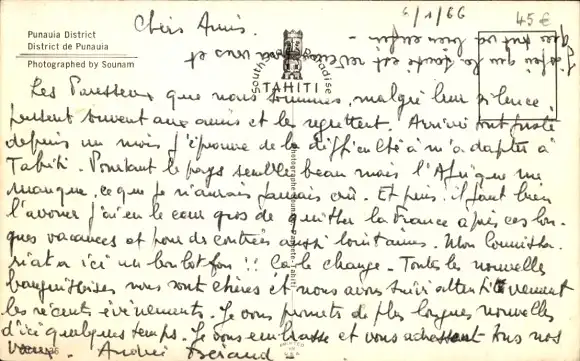 Punauia District
District de Punauia
Photographed by Sounam
Chers Amis.
6/1/66
45 €
South Seas Paradise
TAHITI
Les Paresseux que nous sommes, malgré leur silence
pensent souvent aux amis et les regrettent. Arrivée tout juste
depuis un mois j'éprouve de la difficulté à m'adapter à
Tahiti. Pourtant le pays semble beau mais l'Afrique me
manque, ce que je n'aurais jamais cru. Et puis il faut bien
l'avouer j'ai eu le cœur gros de quitter la France après ces lon-
gues vacances et pour des contrées aussi lointaines. Mon
a ici un boulot fou !! Ça le change. Toutes les nouvelles
nous sont chères et nous avons suivi attentivement
les récents évènements. Je vous promets de plus longues nouvelles
d'ici quelques temps. Je vous embrasse et vous adressent tous nos
vœux. Andrée Béraud
que tout va bien enfin -
la santé est revenue vous et